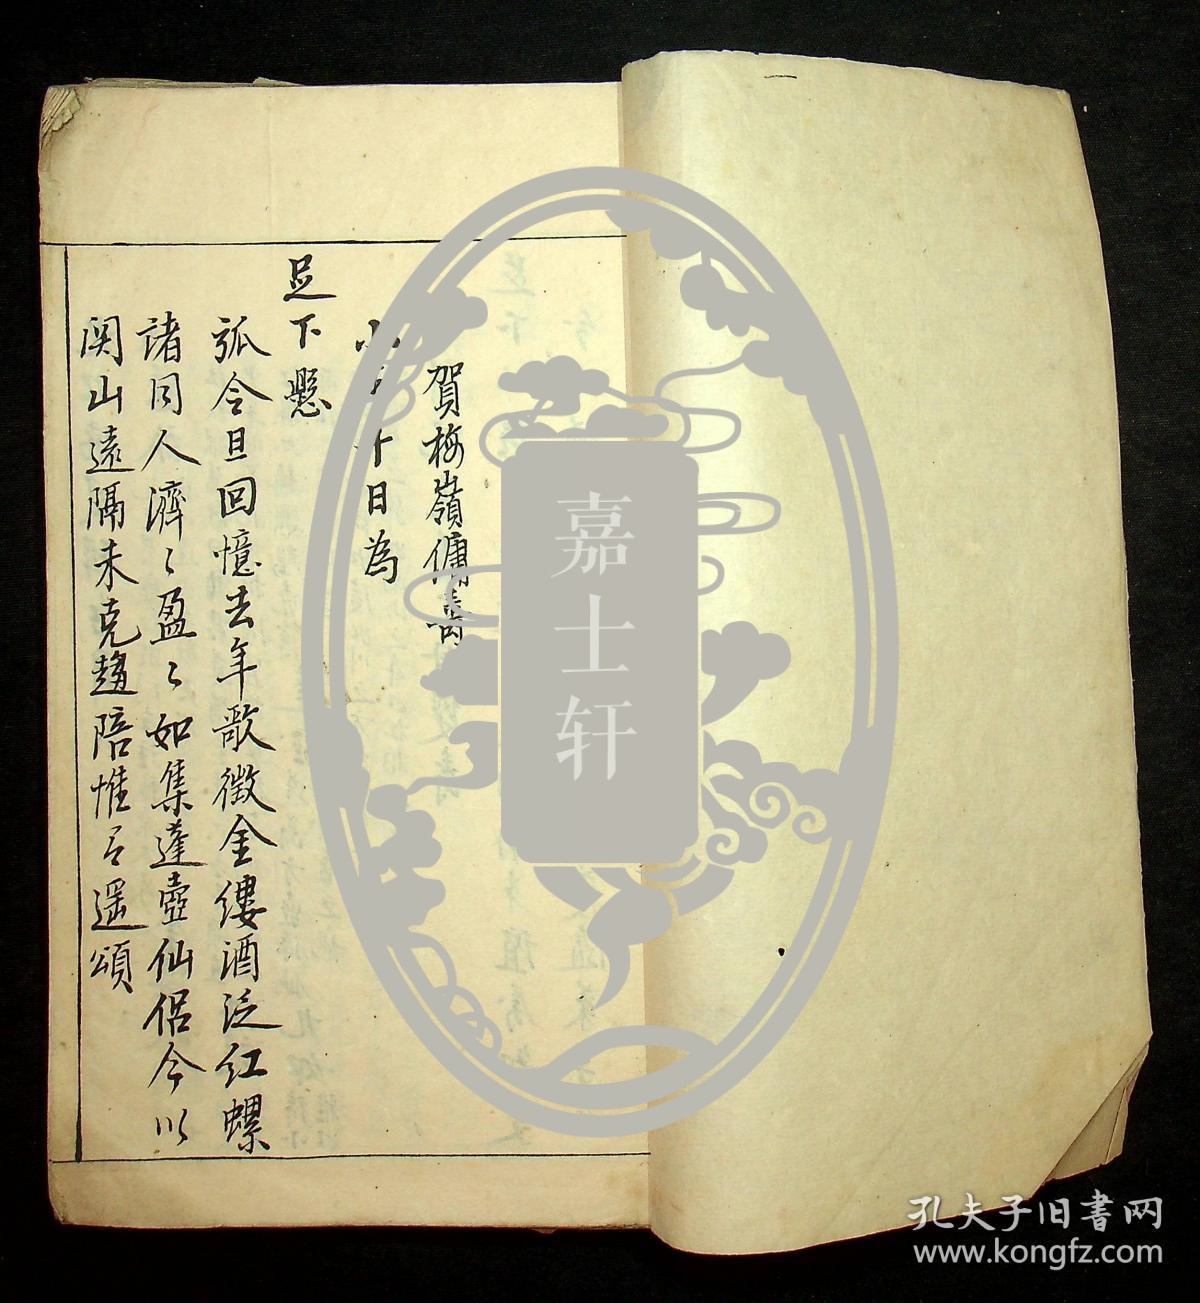 賀梅嶺傭壽
十日為
足下懸
弧令旦回憶去年歌徵金縷酒泛紅螺
諸同人濟〻盈〻如集蓬壺仙侶今以
関山遠隔未克趨陪惟有遥頌
嘉士轩
孔夫子旧書网
www.kongfz.com